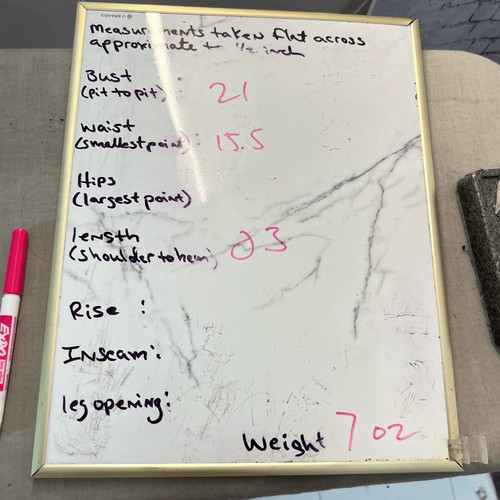 U BRANDS
Measurements taken flat across
approximate + 1/2 inch
Bust :
(pit to pit) 21
waist
(smallest point) : 15.5
Hips
(largest point)
length
(shoulder to hem) 23
Rise :
Inseam :
leg opening :
Weight 7 oz
EXPO